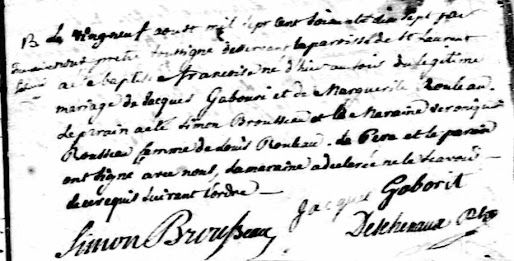 B Le vingneuf aoust mil sept cent soixante dix sept par
nous prêtre soussigné desservant la parroisse de St Laurent
a été baptisé francois né d'hier au soir du legitime
mariage de Jacques Gabouri et de Marguerite Rouleau.
Le pirain a eté Simon Brousseau et la Maraine veronique
Rousseau femme de Louis Rouleau. Le Pere et le parain
ont signé avec nous, la maraine a declarée ne le scavoir
de ce requis suivant l'ordre
Jacque Gaborit
Simon Broußeau Descheneaux Ptre